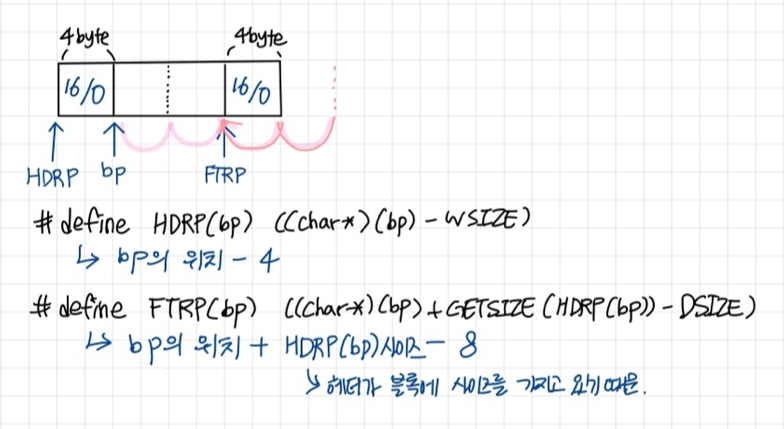 4byte 4byte
16/0 16/0
HDRP bp FTRP
#define HDRP(bp) ((char*)(bp) - WSIZE)
↳ bp의 위치 - 4
#define FTRP(bp) ((char*)(bp) + GETSIZE(HDRP(bp)) - DSIZE)
↳ bp의 위치 + HDRP(bp)사이즈 - 8
↳ 헤더가 블록에 사이즈를 가지고 있기 때문.